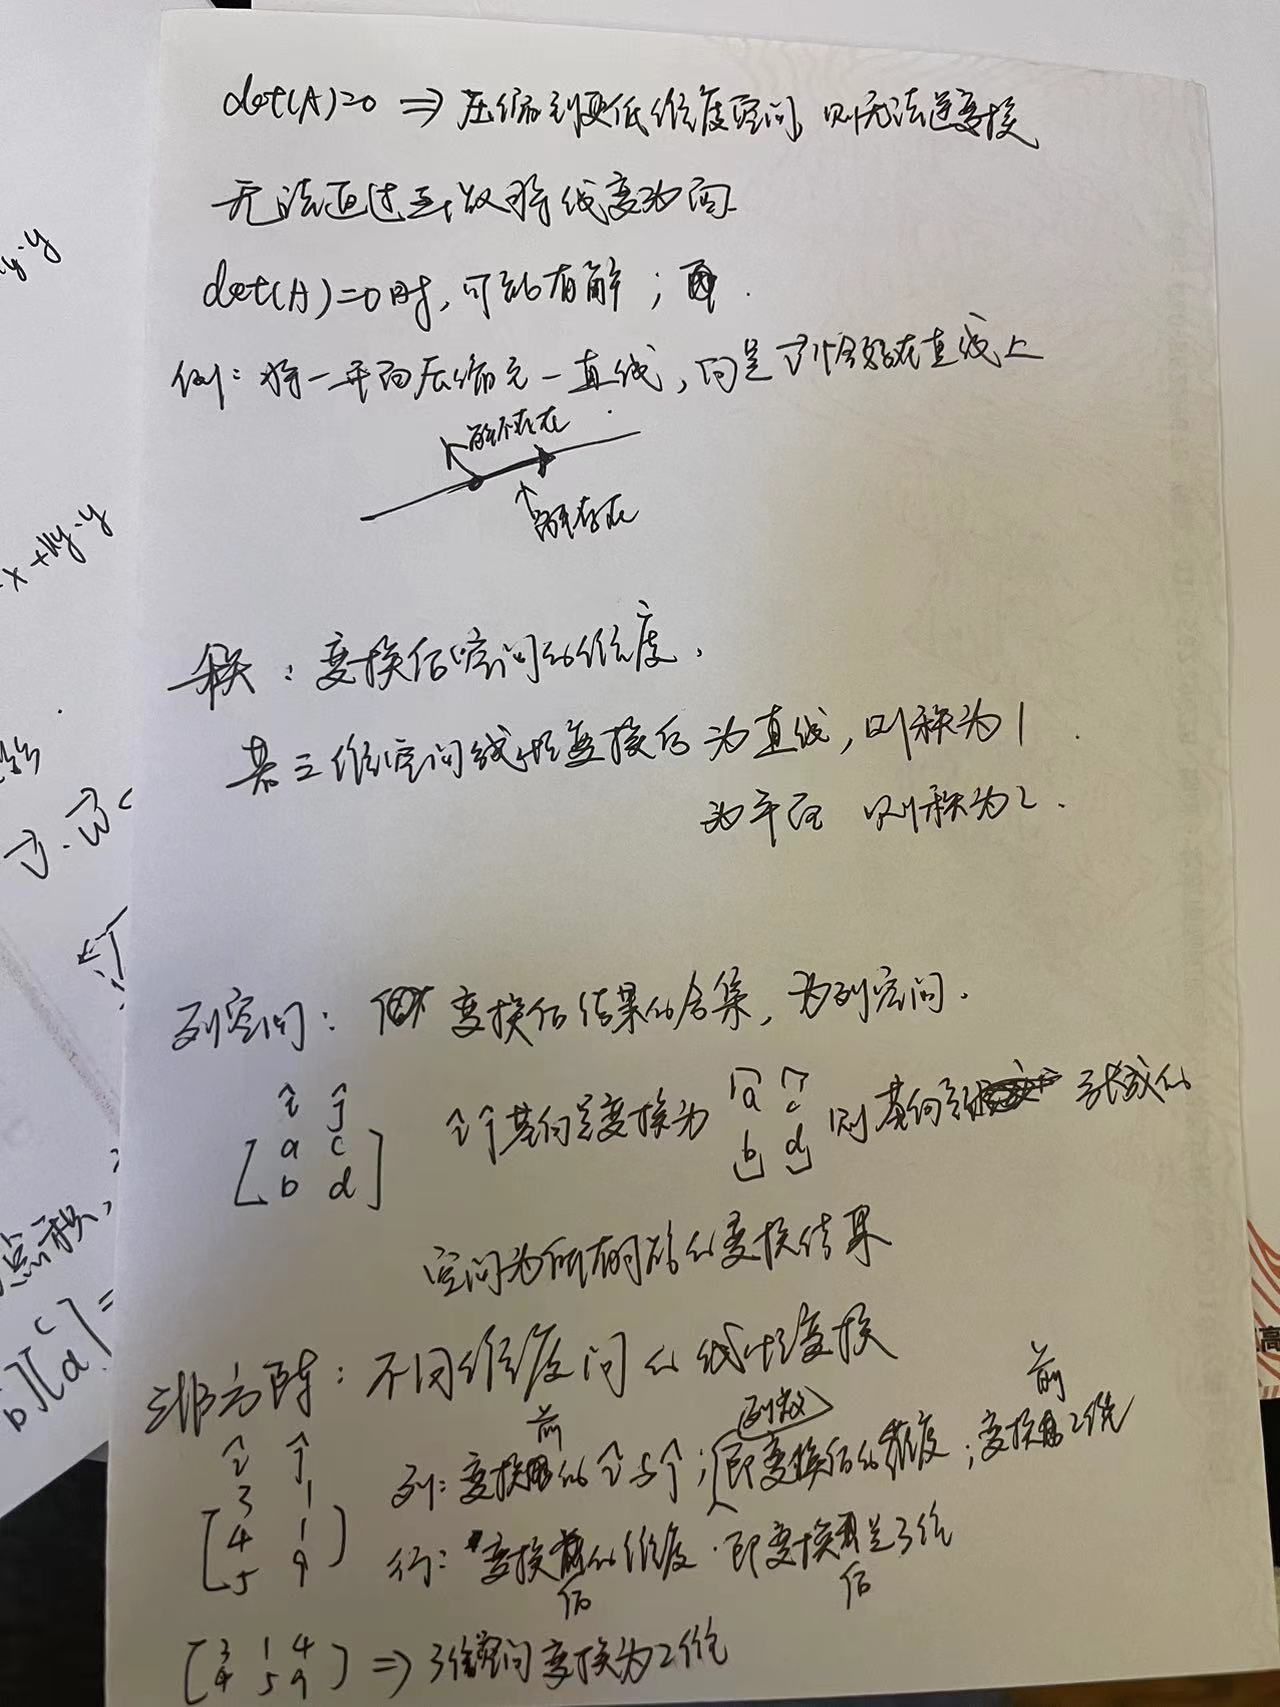 det(A)=0 ⇒ 压缩到更低维度空间, 则无法逆变换
无法通过函数将线变为面.
det(A)=0时, 可能有解;
例: 将一平面压缩为一直线, 向量v⃗恰好在直线上
解不存在
解存在
秩: 变换后空间的维度.
若三维空间线性变换后为直线, 则称为1
为平面 则称为2.
列空间: 变换后结果的合集, 为列空间.
î ĵ
[a c
b d]
î ĵ 基向量变换为 [a b] [c d] 则基向量 张成的
空间为所有可能的变换结果
非方阵: 不同维度间的线性变换
î ĵ
[3 1
4 1
5 9]
列: 变换前的î与ĵ; 列数 即变换后的维度; 变换前2维
行: 变换后的维度. 即变换后是3维
[3 1 4
4 5 9] ⇒ 3维空间变换为2维
y·y
x + y·y
v⃗·w⃗
点积,
b][c d] =
高